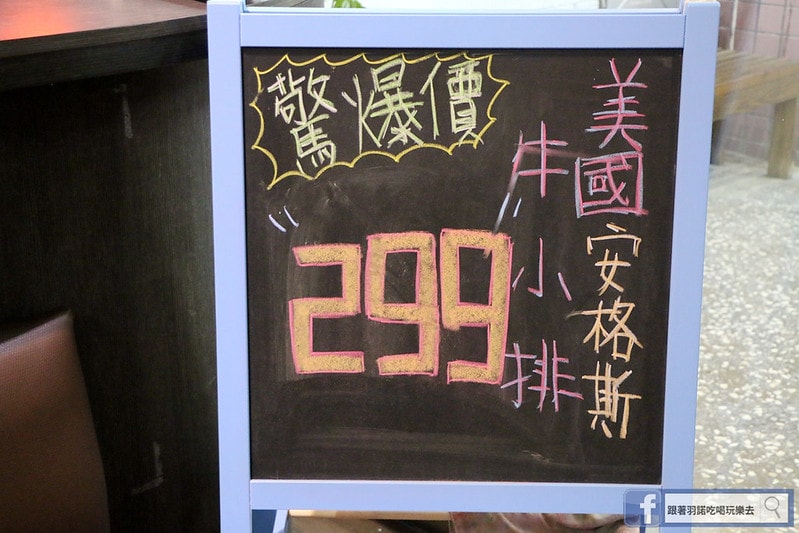 驚爆價
美國安格斯
牛小排
299
跟著羽諾吃喝玩樂去